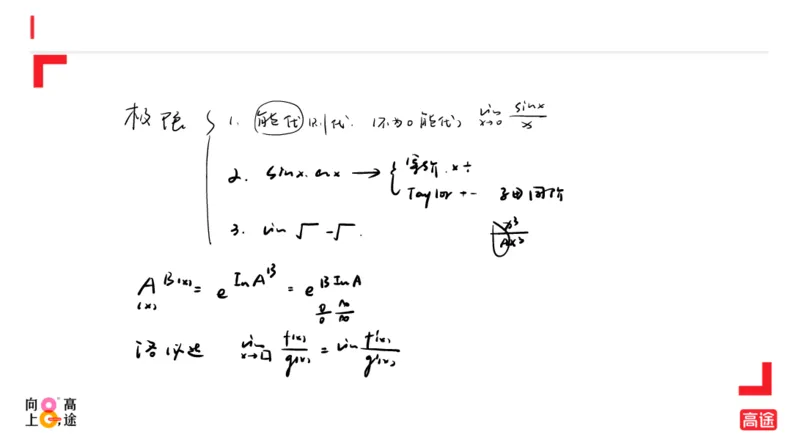 极限 { 1. 能代则代. (不为0能代) lim x→0 sinx/x
2. sinx. lnx → { 等价. x ÷
Taylor + - 子母同阶
3. lim √ - √. x³/Ax³
A(x)^B(x) = e^lnA^B = e^BlnA
0/0 ∞/∞
洛必达 lim x→□ f(x)/g(x) = lim f'(x)/g'(x)
向上 高途
高途